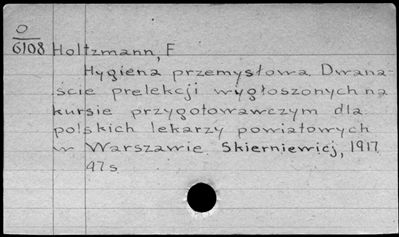 O
6108 Holtzmann, F
Hygiena przemysłowa. Dwana-
ście prelekcji wygłoszonych na
kursie przygotowawczym dla
polskich lekarzy powiatowych
w Warszawie. Skierniewicj, 1917
47s